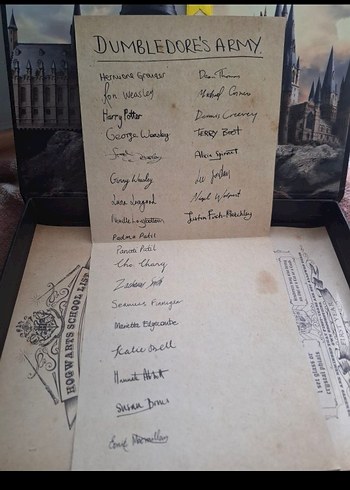 DUMBLEDORE'S ARMY.
Hermione Granger
Ron Weasley
Harry Potter
George Weasley
Fred Weasley
Ginny Weasley
Luna Lovegood
Neville Longbottom
Padma Patil
Parvati Patil
Cho Chang
Zacharias Smith
Seamus Finnigan
Marietta Edgecombe
Katie Bell
Hannah Abbott
Susan Bones
Ernie Macmillan
Dean Thomas
Michael Corner
Dennis Creevey
TERRY BOOT
Alicia Spinnet
Lee Jordan
Nigel Wolpert
Justin Finch-Fletchley
HOGWARTS SCHOOL LIST